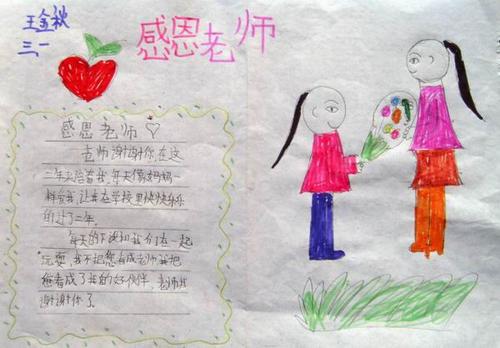 王金秋
三、一
感恩老师
感恩老师
老师谢谢你,在这
二年来陪着我,每天像妈妈一
样爱我,让我在学校里快快乐乐
的过了二年。
每天的下课和我们在一起
玩耍,我不把您看成老师我把
您看成了我的好伙伴,老师我
谢谢你了。